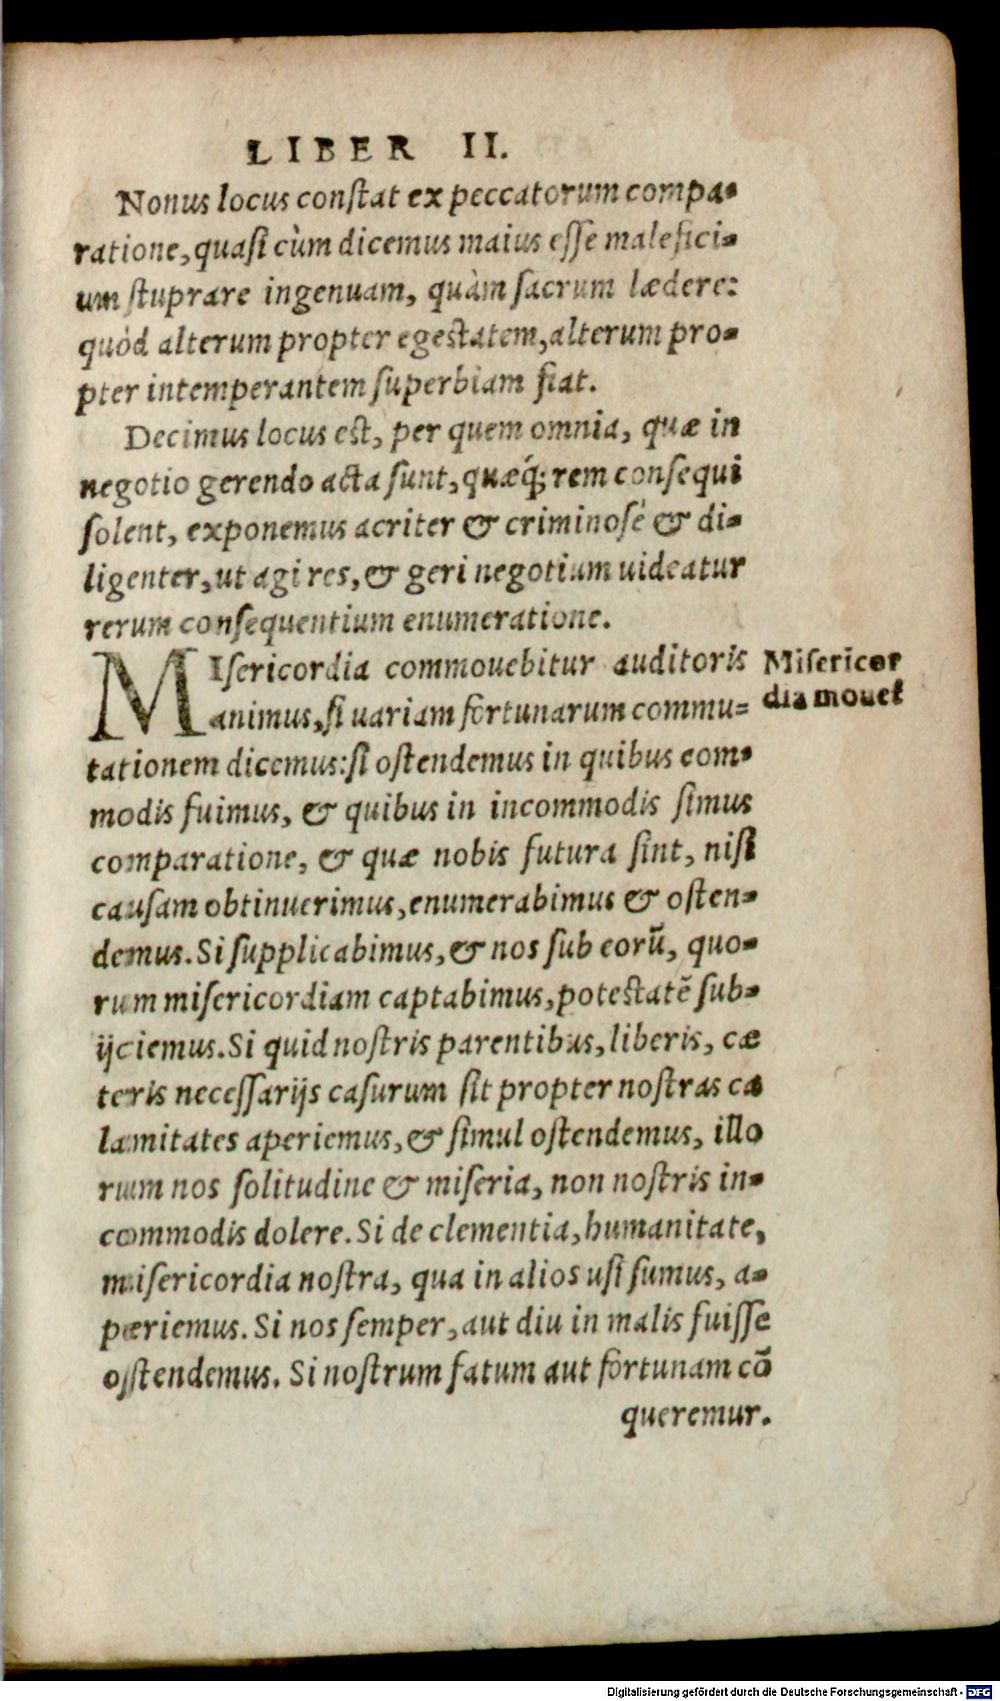 LIBER II.
Nonus locus constat ex peccatorum compa-
ratione, quasi cùm dicemus maius esse malefici-
um stuprare ingenuam, quàm sacrum lædere:
quòd alterum propter egestatem, alterum pro-
pter intemperantem superbiam fiat.
Decimus locus est, per quem omnia, quæ in
negotio gerendo acta sunt, quæq́; rem consequi
solent, exponemus acriter & criminosè & di-
ligenter, ut agi res, & geri negotium uideatur
rerum consequentium enumeratione.
MIsericordia commouebitur auditoris
animus, si uariam fortunarum commu-
tationem dicemus: si ostendemus in quibus com-
modis fuimus, & quibus in incommodis simus
comparatione, & quæ nobis futura sint, nisi
causam obtinuerimus, enumerabimus & osten-
demus. Si supplicabimus, & nos sub eorū, quo-
rum misericordiam captabimus, potestatē sub-
ijciemus. Si quid nostris parentibus, liberis, cæ
teris necessarijs casurum sit propter nostras ca
lamitates aperiemus, & simul ostendemus, illo
rum nos solitudine & miseria, non nostris in-
commodis dolere. Si de clementia, humanitate,
misericordia nostra, qua in alios usi sumus, a-
periemus. Si nos semper, aut diu in malis fuisse
ostendemus. Si nostrum fatum aut fortunam cō
queremur.
Misericor
dia mouet
Digitalisierung gefördert durch die Deutsche Forschungsgemeinschaft - DFG